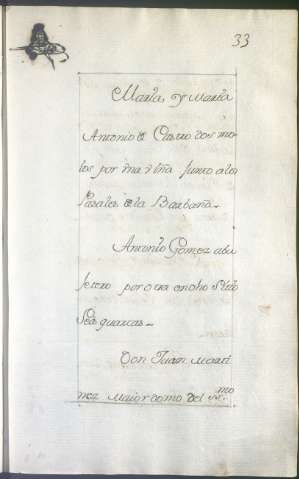 33
Maria, y Maria
Antonio de Castro dos mo-
los por vna viña junto a los
Pasales de la Barbaña.
Antonio Gomez aba
por otra en otro sitio
Don Juan Marti
nez Maiordomo del SSmo